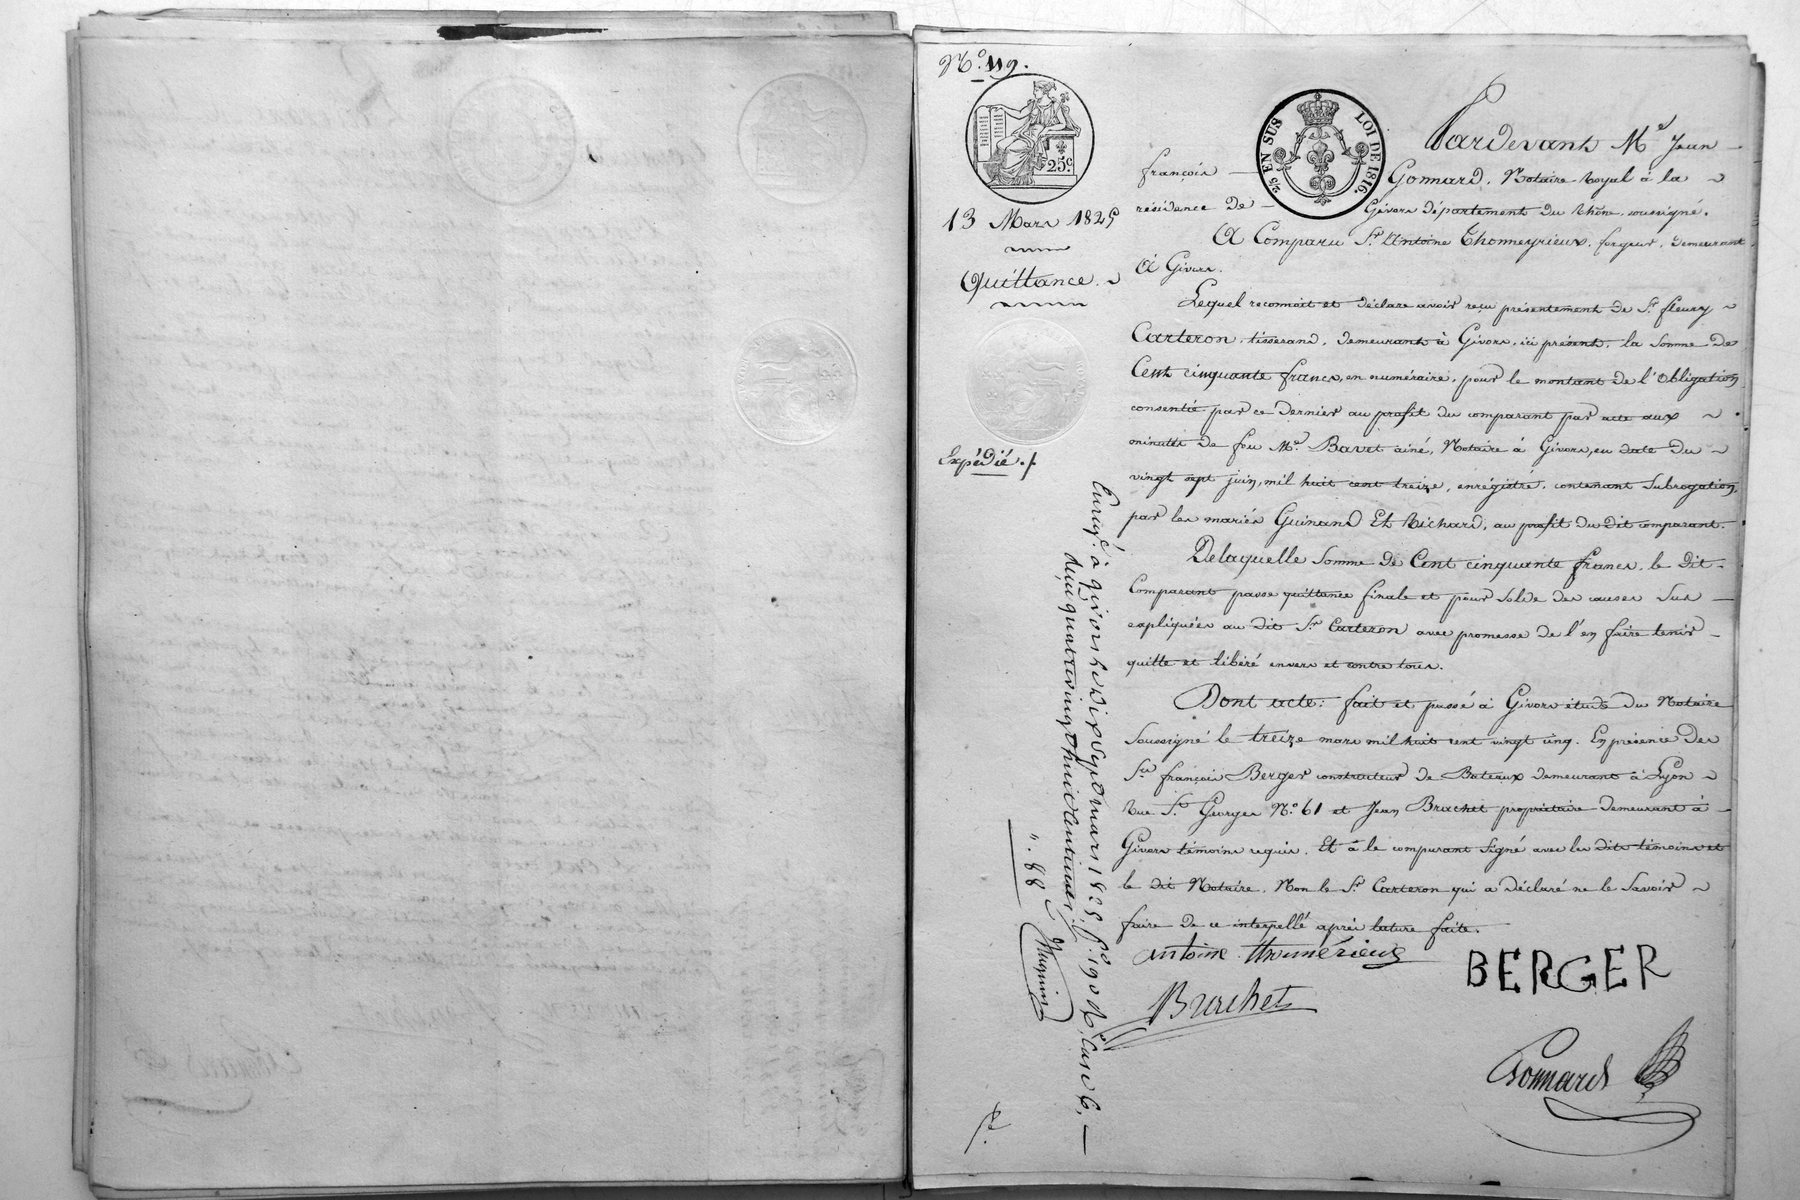 N.o 119.
25 c.
25 EN SUS LOI DE 1816.
13 Mars 1825
Quittance.
Expédié ./.
Pardevant M.e Jean
françois Gonnard, Notaire royal à la
résidence de Givors département du Rhône, soussigné.
A Comparu S.r Antoine Thonneyrieux, forgeur, demeurant
à Givors.
Lequel reconnait et déclare avoir reçu présentement de S.r fleury
Carteron, tisserand, demeurant à Givors, ici présent, la Somme de
Cent cinquante francs, en numéraire, pour le montant de l'Obligation
consentie par ce dernier au profit du comparant par acte aux
minutes de feu M.e Bavet ainé, Notaire à Givors, en date du
vingt sept juin, mil huit cent treize, enrégistré, contenant Subrogation,
par les mariés Guinand Et Richard, au profit du dit comparant.
Delaquelle Somme de Cent cinquante francs, le dit
Comparant passe quittance finale et pour Solde des causes Sus
expliquées au dit S.r Carteron avec promesse de l'en faire tenir
quitte et libéré envers et contre tous.
Dont acte: fait et passé à Givors étude du Notaire
Soussigné le treize mars mil huit cent vingt cinq. En présence des
S.rs françois Berger constructeur de Bateaux demeurant à Lyon
rue S.t Georges N.o 61 et Jean Brachet propriétaire demeurant à
Givors témoins requis. Et à le comparant Signé avec les dits témoins et
le dit Notaire, Non le S.r Carteron qui a déclaré ne le Savoir
faire de ce interpellé après lecture faite.
antoine thonnérieux
BERGER
Brachet
Gonnard
Enreg.é à givors le dix sept mars 1825, f.o 190 R.o case 6,
reçu quatre vingt huit centimes
". 88